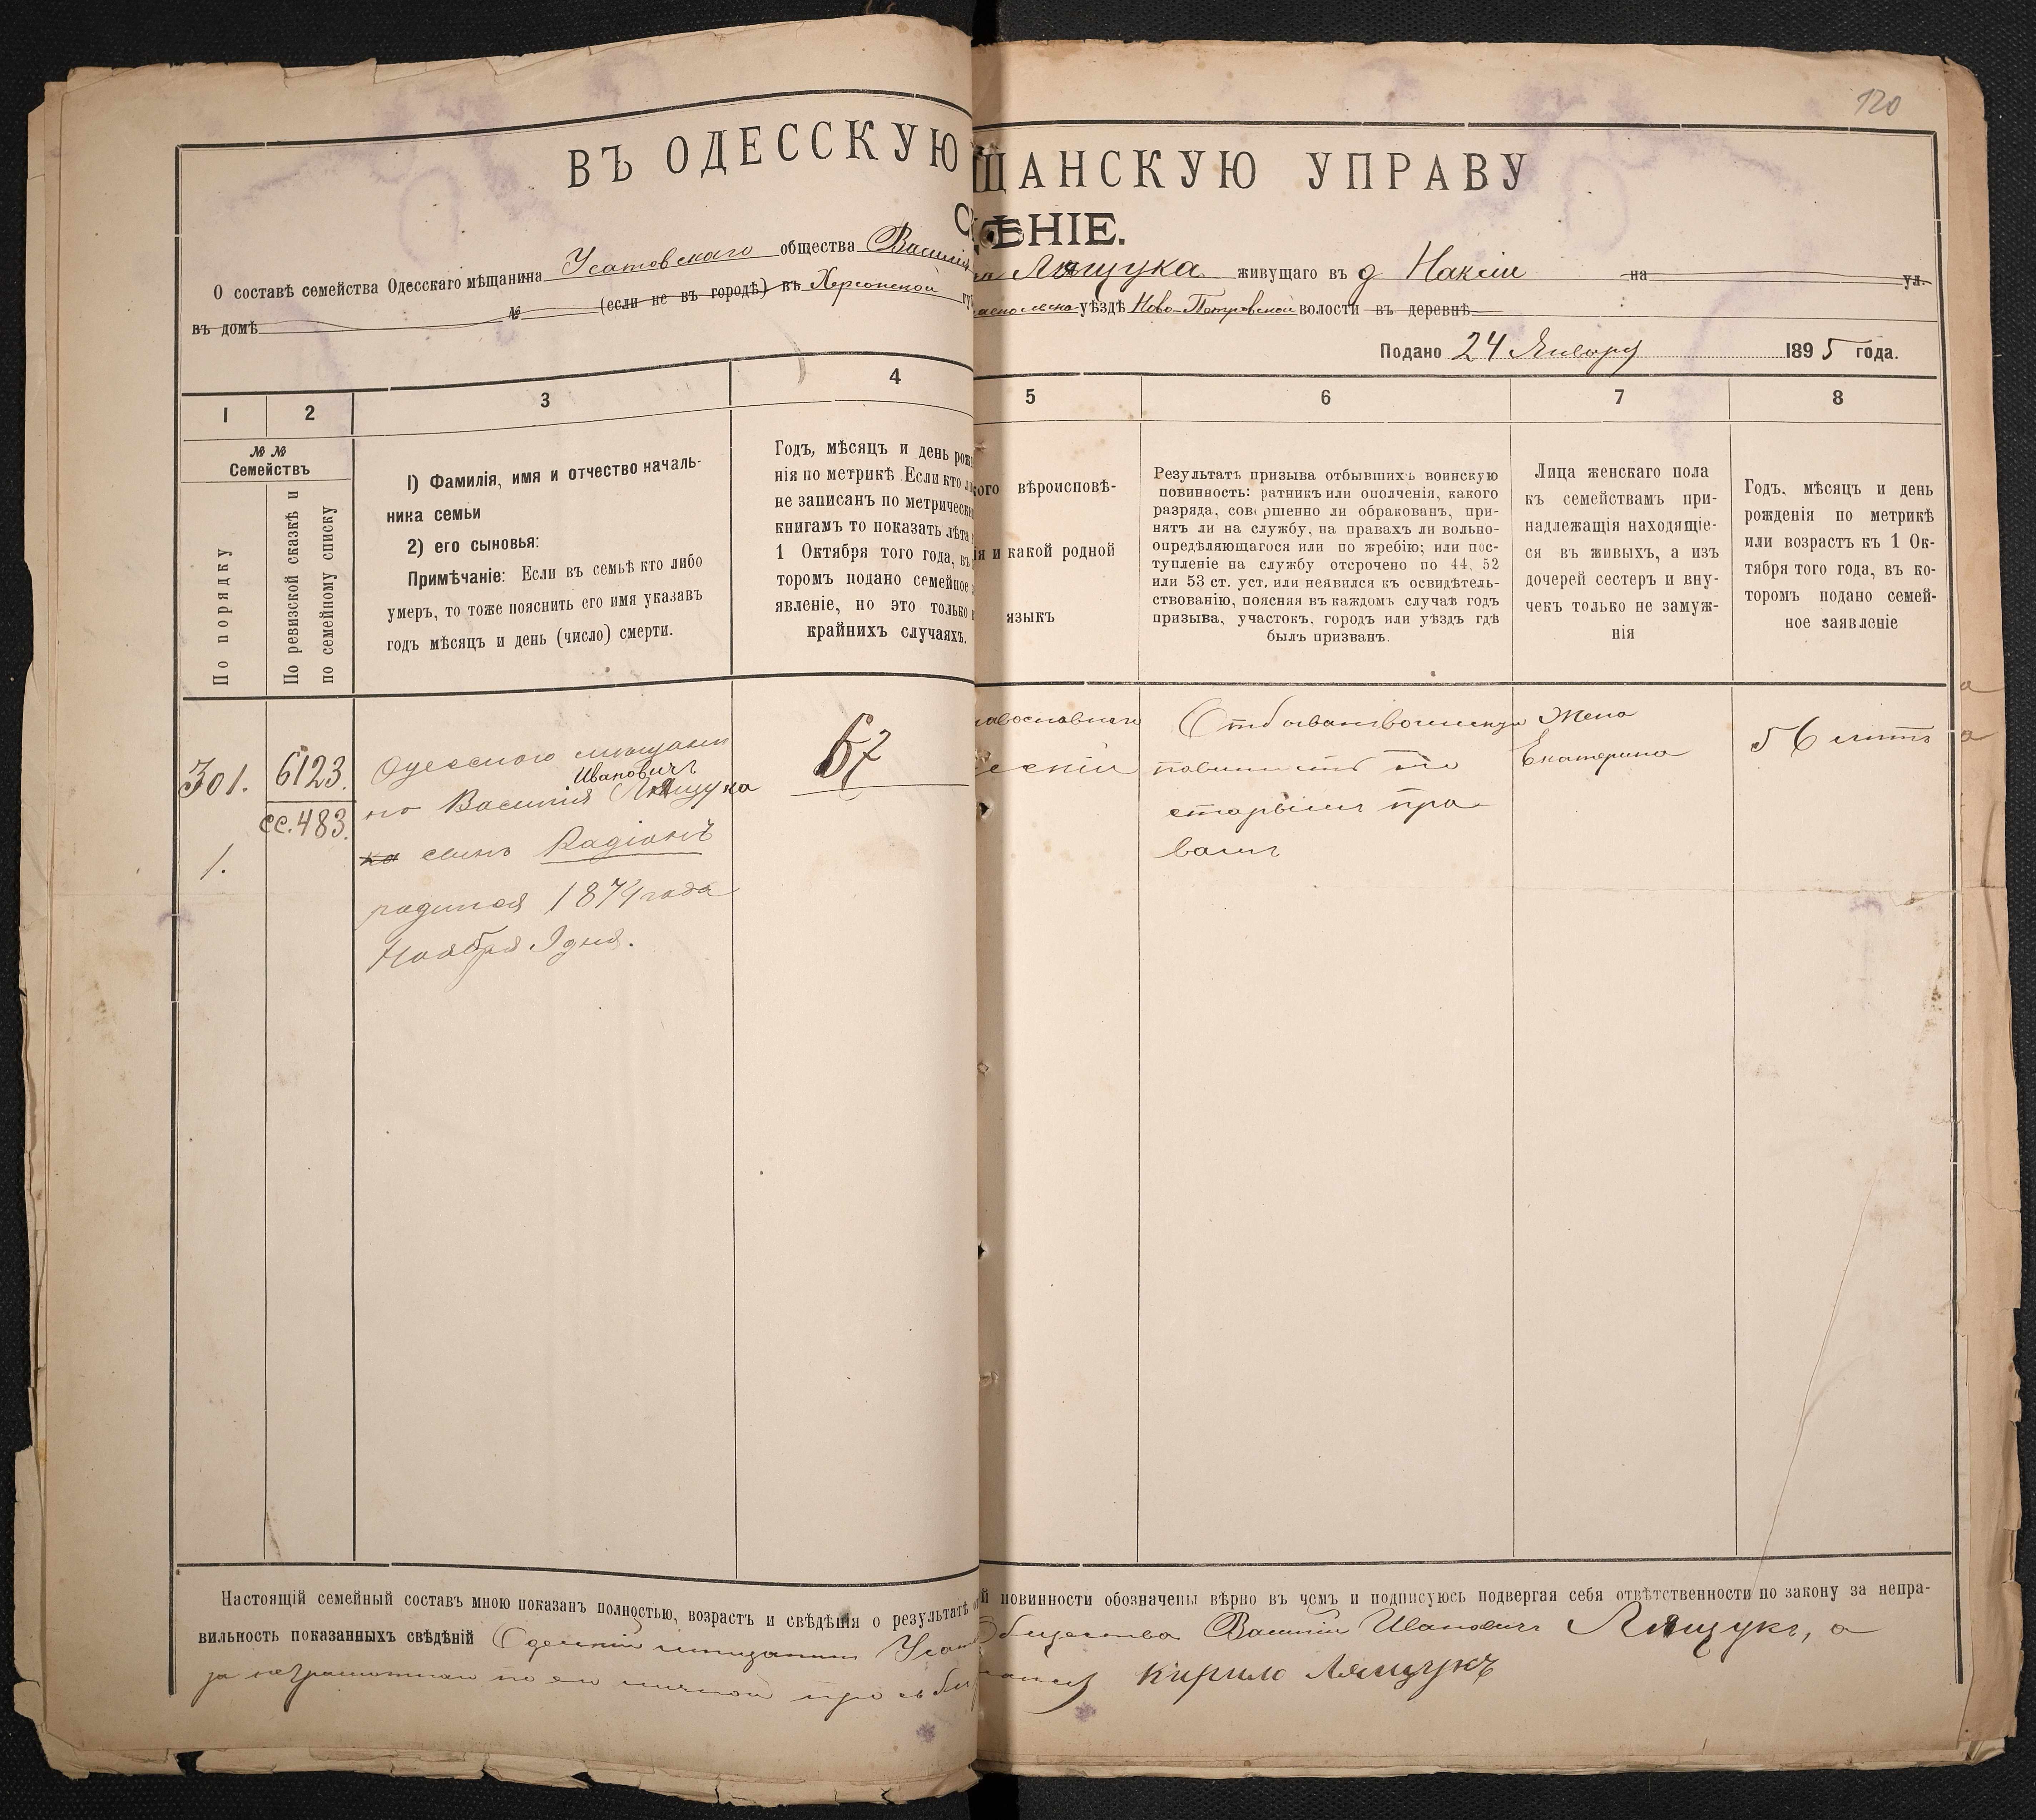 120
ВЪ ОДЕССКУЮ ЩАНСКУЮ УПРАВУ
ѢНІЕ.
О составѣ семейства Одесскаго мѣщанина Усатовскаго общества Василія Лящука живущаго въ д Наксіи на ул.
въ домѣ № (если не въ городѣ) въ Херсонской уѣздѣ Ново-Петровской волости въ деревнѣ
Подано 24 Января 1895 года.
1 2 3 4 5 6 7 8
№№
Семействъ
По порядку
По ревизской сказкѣ и
по семейному списку
1) Фамилія, имя и отчество началь-
ника семьи
2) его сыновья:
Примѣчаніе: Если въ семьѣ кто либо
умеръ, то тоже пояснить его имя указавъ
годъ мѣсяцъ и день (число) смерти.
Годъ, мѣсяцъ и день рож
нія по метрикѣ Если кто
не записанъ по метрическ
книгамъ то показать лѣта
1 Октября того года, въ
торомъ подано семейное
явленіе, но это только
крайнихъ случаяхъ.
кого вѣроисповѣ-
ія и какой родной
языкъ
Результатъ призыва отбывшихъ воинскую
повинность: ратникъ или ополченія, какого
разряда, совершенно ли обракованъ, при-
нятъ ли на службу, на правахъ ли вольно-
опредѣляющагося или по жребію; или пос-
тупленіе на службу отсрочено по 44, 52
или 53 ст. уст. или неявился къ освидѣтель-
ствованію, поясняя въ каждомъ случаѣ годъ
призыва, участокъ, городъ или уѣздъ гдѣ
былъ призванъ.
Лица женскаго пола
къ семействамъ при-
надлежащія находящіе-
ся въ живыхъ, а изъ
дочерей сестеръ и вну-
чекъ только не замуж-
нія
Годъ, мѣсяцъ и день
рожденія по метрикѣ
или возрастъ къ 1 Ок-
тября того года, въ ко-
торомъ подано семей-
ное заявленіе
301.
6123.
сс.483.
1.
Одесского мещани
Ивановичъ
но Василія Лящука
ка сынъ Радіонъ
родился 1874 года
Ноября 9 дня.
67
авославнаго
Отбывалъ воинскую
повинность по
старымъ пра
вамъ
Жена
Екатерина
56 летъ
Настоящій семейный составъ мною показанъ полностью, возрастъ и свѣдѣнія о результатѣ й повинности обозначены вѣрно въ чемъ и подписуюсь подвергая себя отвѣтственности по закону за непра-
вильность показанныхъ свѣдѣній Одескій мещанин Усат Общества Василій Ивановичъ Лящукъ, а
за неграмотнаго по его личной просьбы Кирило Лящукъ